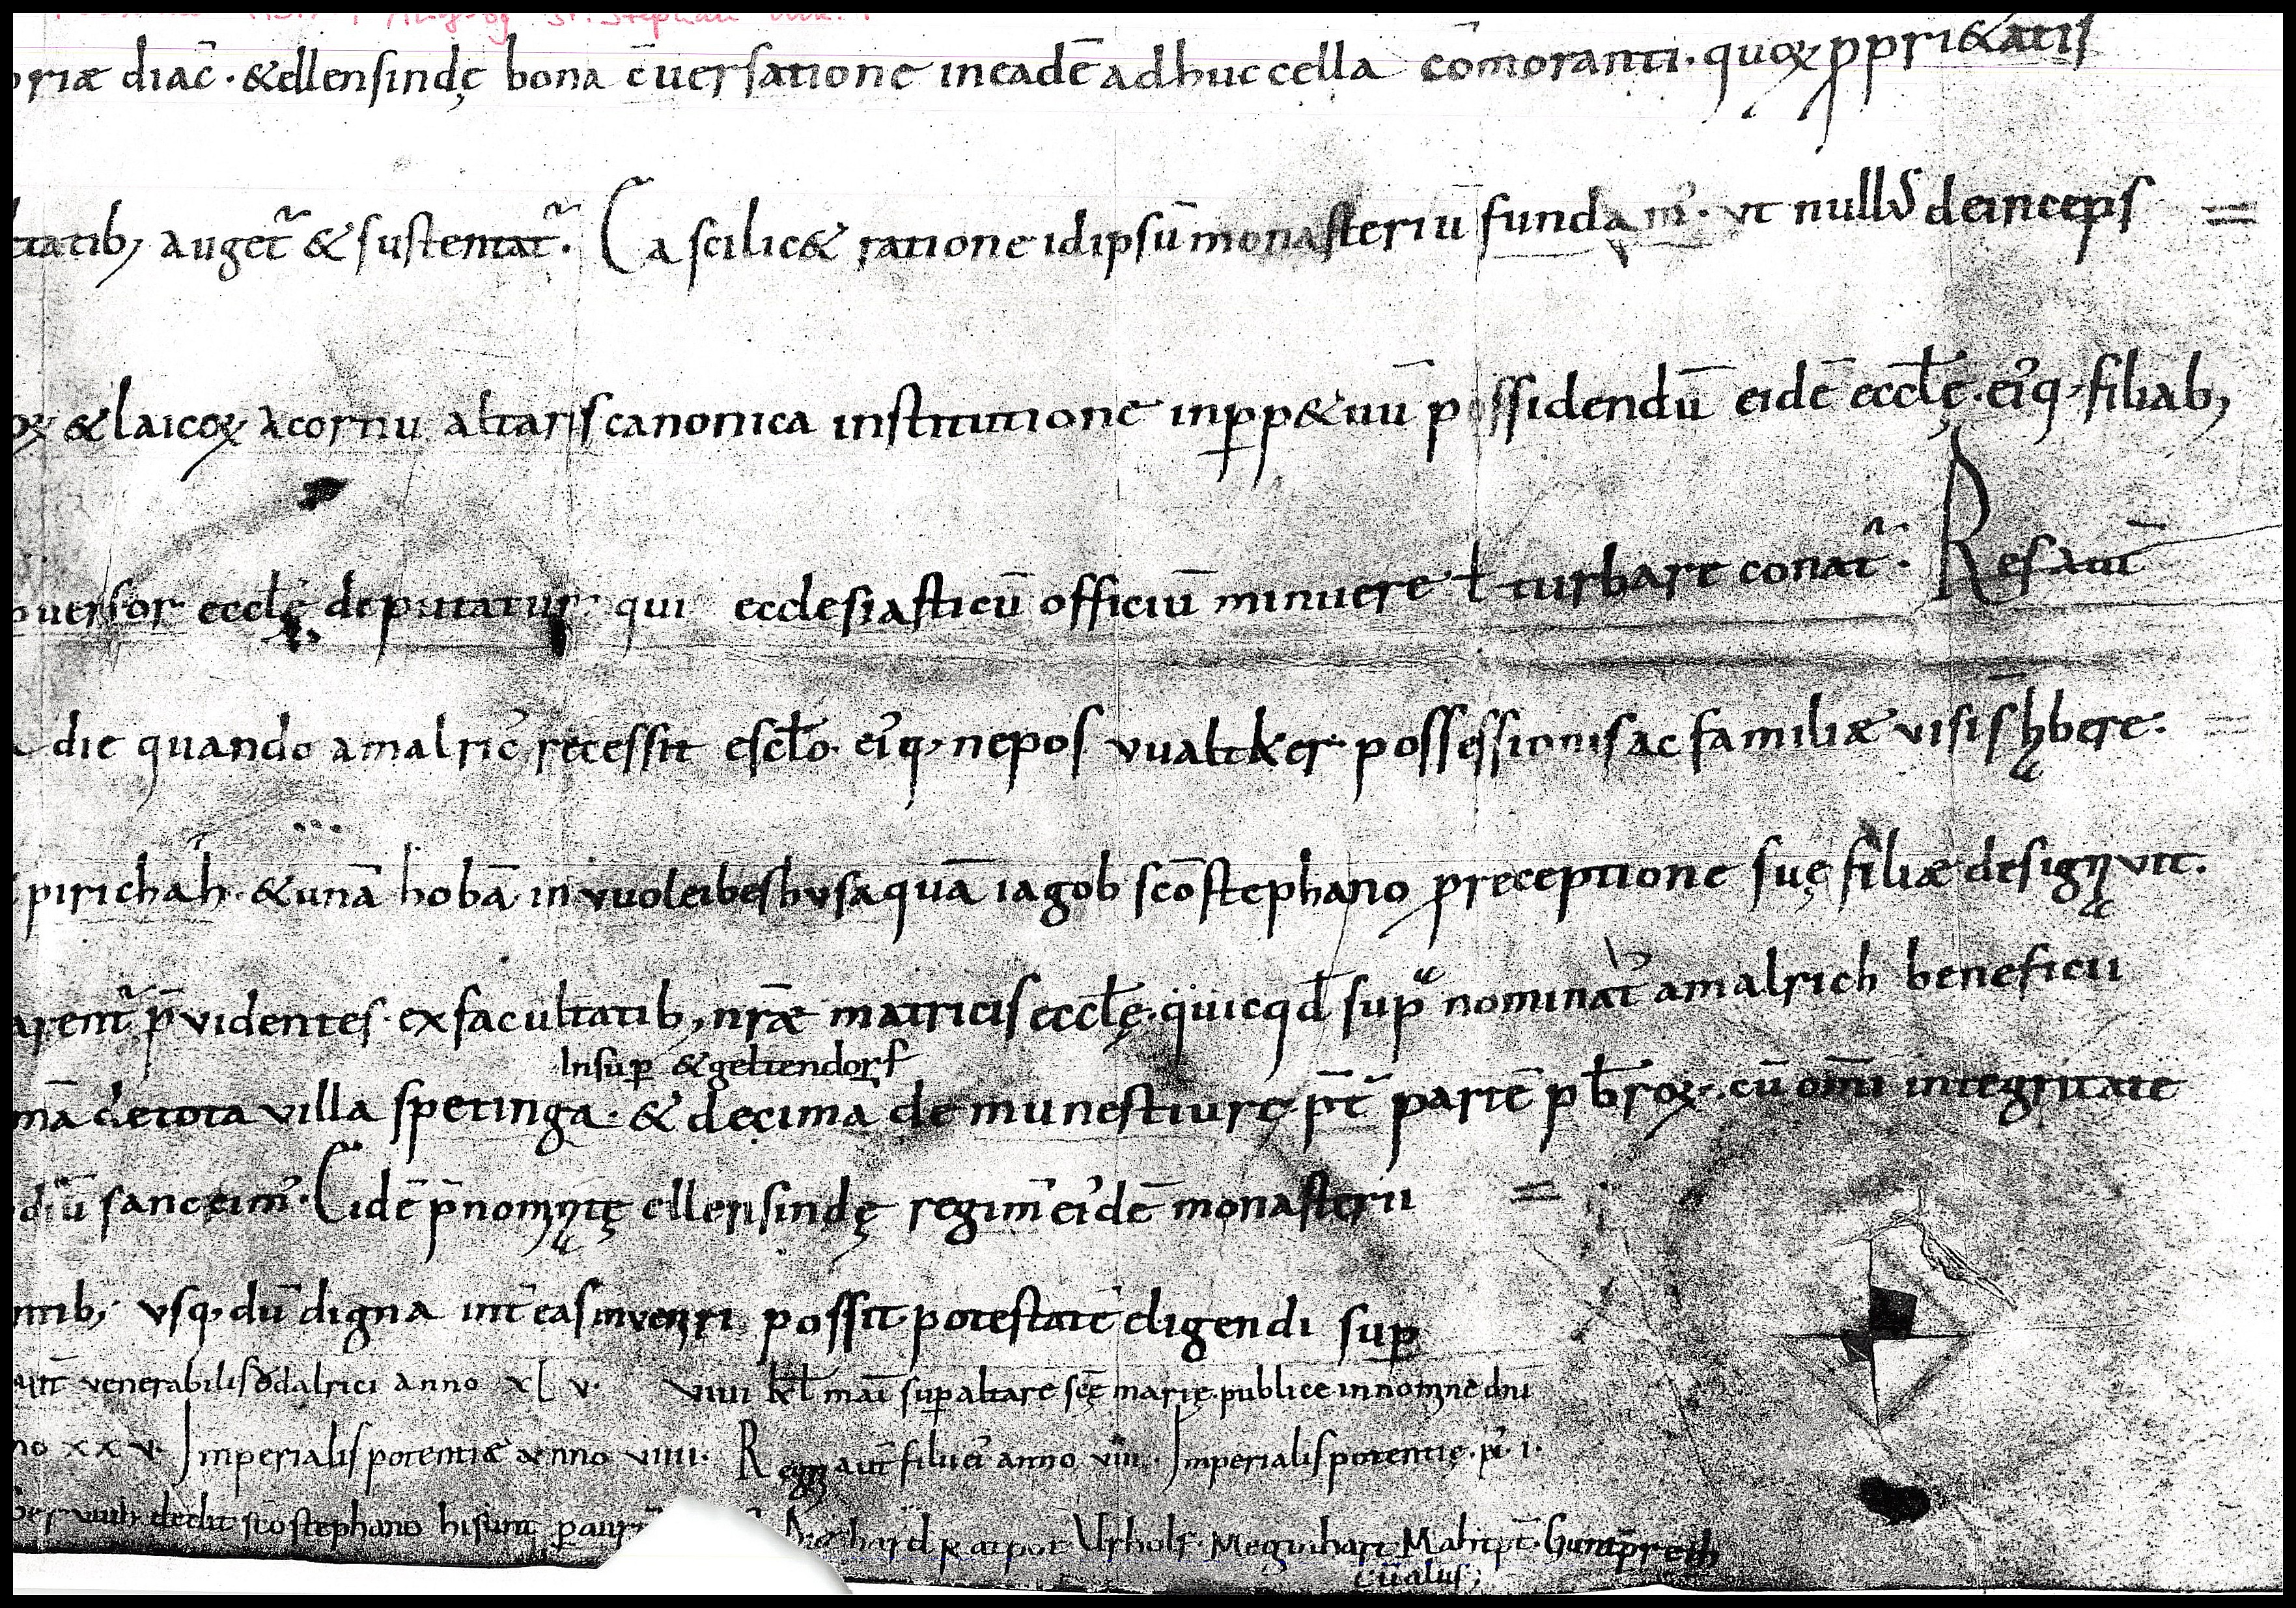 oriæ diac̄ · &ellensindę bona c̄uersatione ineadē adhuc cella cōmoranti · quoꝝ ꝓpri&atis
tatib; auget᷑ & sustentat᷑ · Ea scilic& ratione idipsū monasteriū fundam᾽ · vt null᾽ deinceps =
oꝝ & laicoꝝ a cornu altaris canonica institutione inꝓp&uū possidendū eidē eccłę · ei᾽q; filiab;
uersor eccłę deputatur · qui ecclesiasticū officiū minuere ł turbare conat᷑ · Res aut̄
die quando amalric᾽ recessit e scło · ei᾽q; nepos vualtker · possessionis ac familiæ visis h̄bere ·
pirichah · & unā hobā in vuoleibeshusa quā iagob sc̄o stephano p̱receptione suę filiæ designvit ·
arent᷑ p̄videntes · ex facultatib; nr̄æ matricis eccłę · quicqd̄ sup nominat᾽ amalrich beneficii
Insup & geltendorf
mā de tota villa spetinga · & decima de munestiure · p̄t partē pb̄roꝝ · cū om̄i integritate
diū sanccim᾽ · Eidē p̄nomntę ellensindę regim̄ ei᾽dē monasterii =
ntib; vsq; dū digna int̄ eas inveniri possit · potestatē eligendi sup
aut̄ venerabilis ödalrici anno xl v · viiii kł mai sup altare scę marię · publice in nomine dn̄i
no xxv · Imperialis potentiæ anno viiii · Regni aut̄ filii ei᾽ anno viii · Imperialis potentię · i ·
dedit sc̄o stephano hi sunt p aur Ratpot Vrholf · Meginhart Mahtp̄t · Guntp̄reth
cūalus;